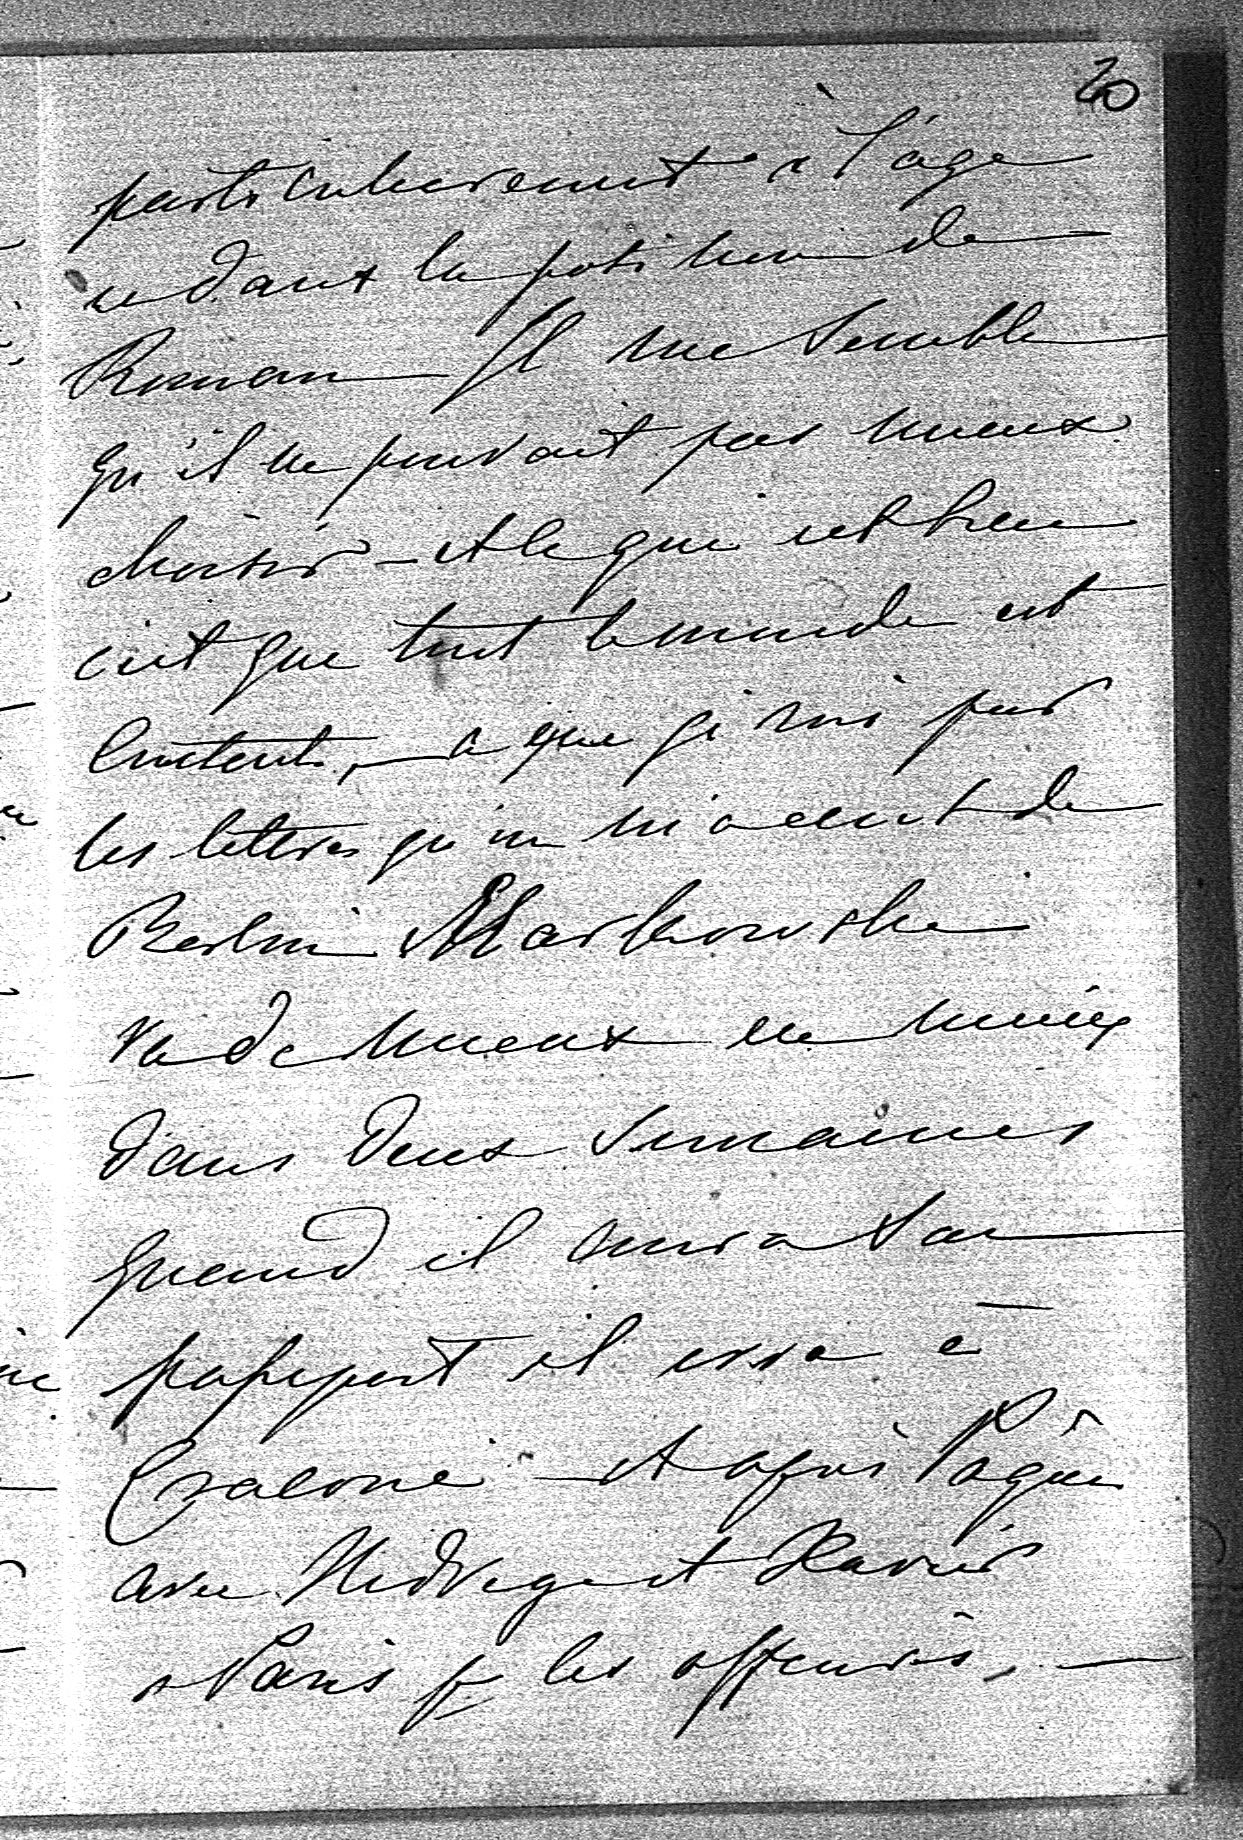 20
particulierement à l'age
et dans la position de
Roman Il me semble
qu'il ne pouvait pas mieux
choisir – et ce qui est bien
c'est que tout le monde est
content, – a que j'ai vu par
les lettres qu'on m'a écrit de
Berlin
va de mieux en mieux
dans deux semaines
quand il aura son
passeport il ira à
Cracovie – et après Pâques
avec Hedvige et Xavier
a Paris pr les affaires. –